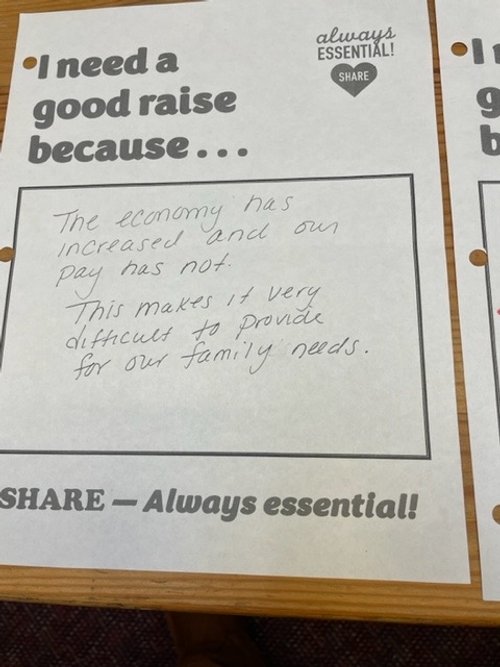 always
ESSENTIAL!
SHARE
I need a
good raise
because...
The economy has
increased and our
pay has not.
This makes it very
difficult to provide
for our family needs.
SHARE — Always essential!